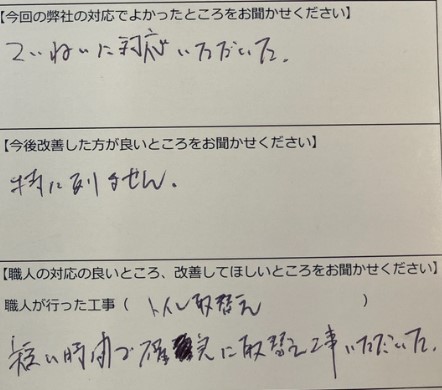 【今回の弊社の対応でよかったところをお聞かせください】
ていねいに対応いただいた。
【今後改善した方が良いところをお聞かせください】
特に有りません。
【職人の対応の良いところ、改善してほしいところをお聞かせください】
職人が行った工事（ トイレ取替え ）
短い時間で確実に取替え工事いただいた。